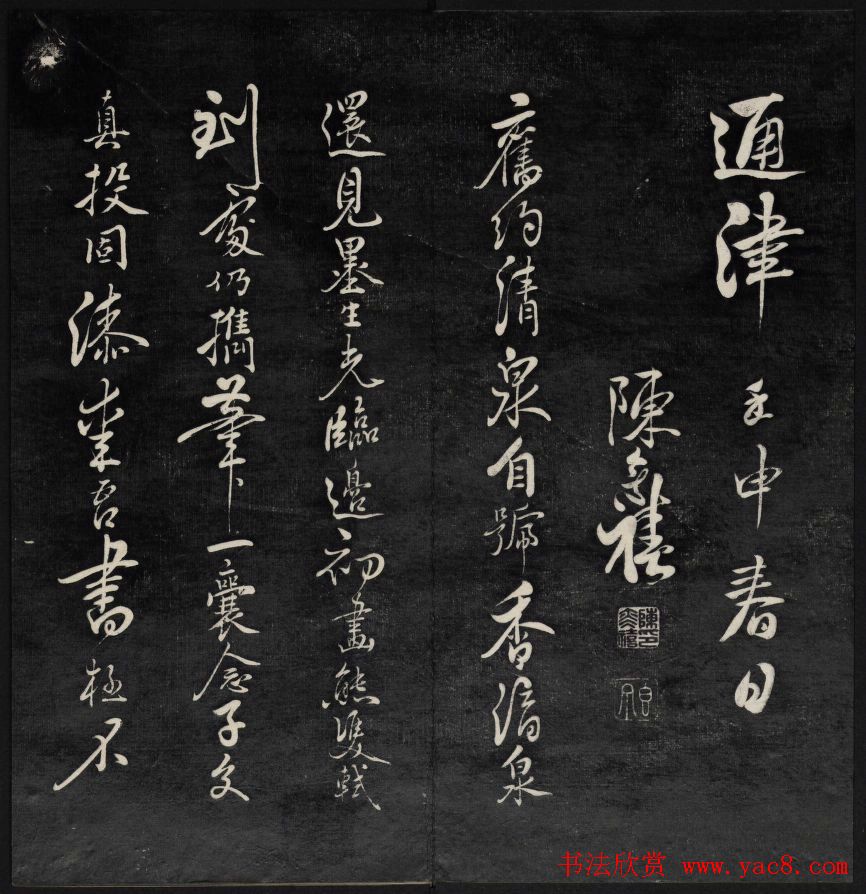 通津 壬申春日
陳奕禧
陳奕禧印
舊約清泉自號香泉
還見墨生光臨邊初畫熊雙軾
到處仍攜筆一囊念子交
真投固漆吾書極不
书法欣赏 www.yac8.com